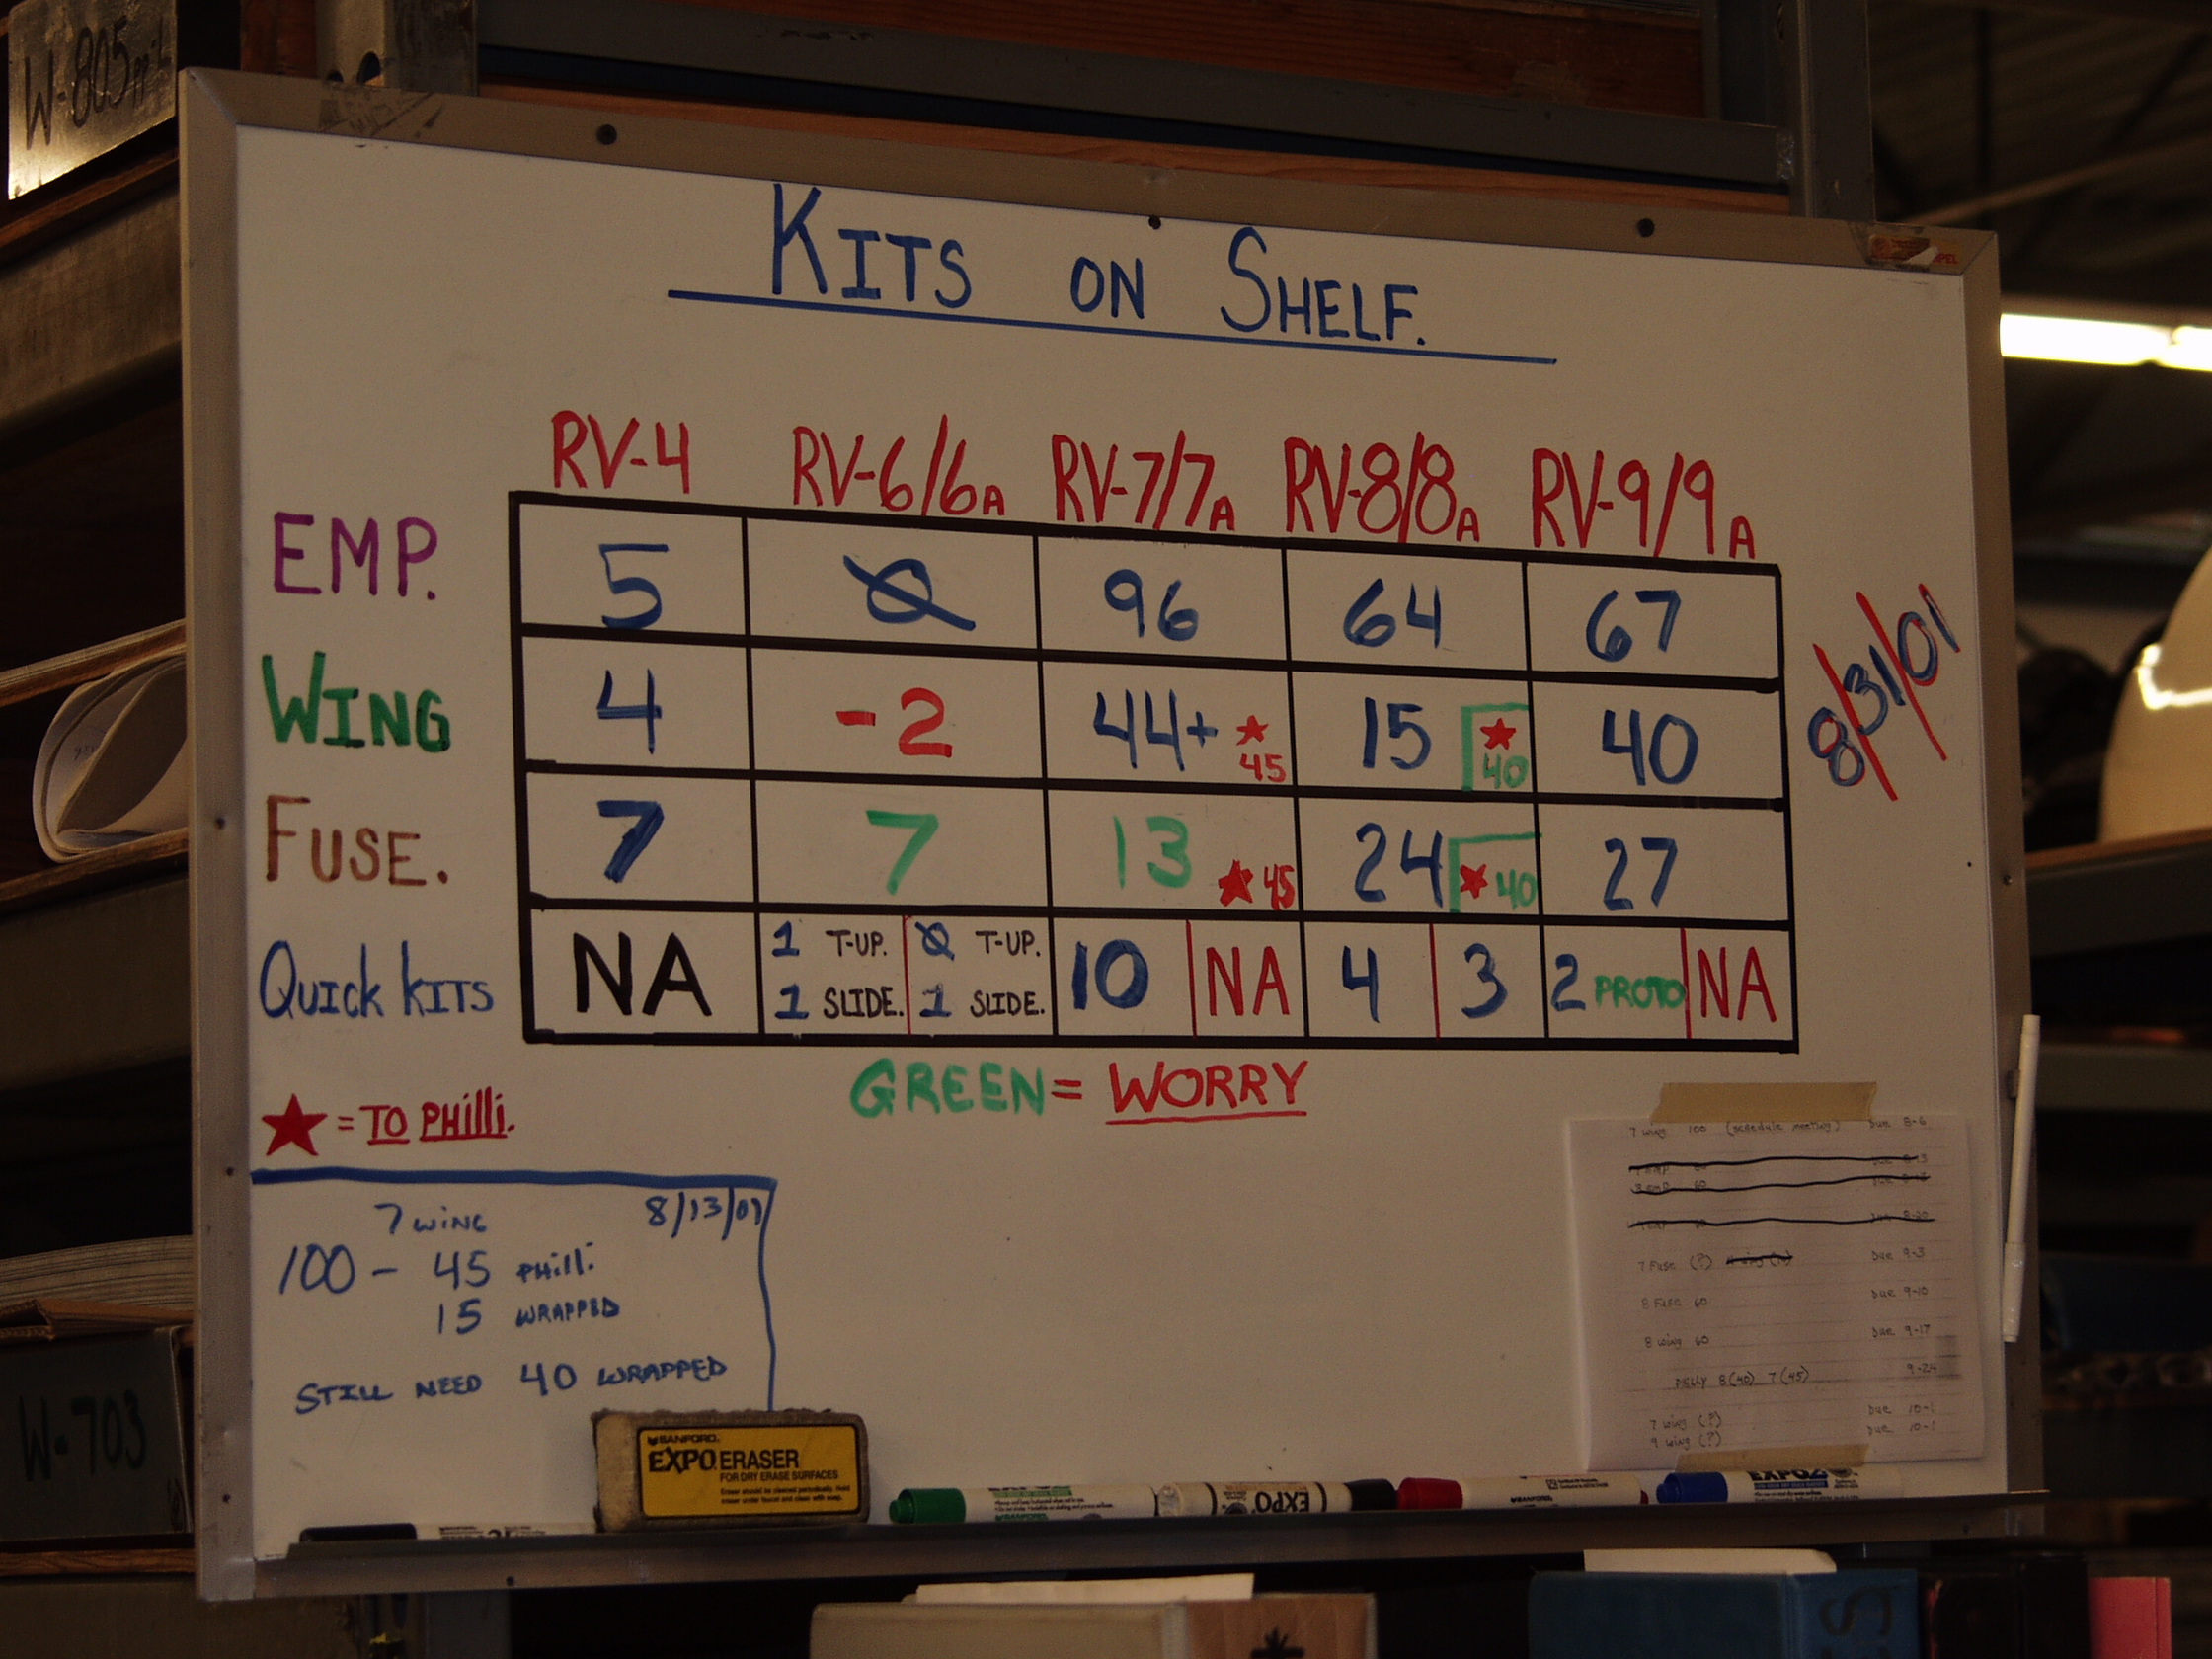 W-805
KITS ON SHELF.
RV-4 RV-6/6A RV-7/7A RV-8/8A RV-9/9A
EMP. 5 0 96 64 67
8/31/01
WING 4 -2 44+ ★ 45 15 ★ 40 40
FUSE. 7 7 13 ★ 45 24 ★ 40 27
QUICK KITS NA 1 T-UP. 0 T-UP. 10 NA 4 3 2 PROTO NA
1 SLIDE. 1 SLIDE.
★ = TO PHILLI.
GREEN = WORRY
7 WING 8/13/01
100 - 45 PHILLI.
15 WRAPPED
STILL NEED 40 WRAPPED
7 wing 100 (schedule meeting) Due 8-6
3 emp 60
7 Fuse (?) Due 9-3
8 Fuse 60 Due 9-10
8 wing 60 Due 9-17
8(40) 7(45) 9-24
7 wing (?) Due 10-1
9 wing (?) Due 10-1
W-703
SANFORD.
EXPO ERASER
FOR DRY ERASE SURFACES
EXPO
EXPO2